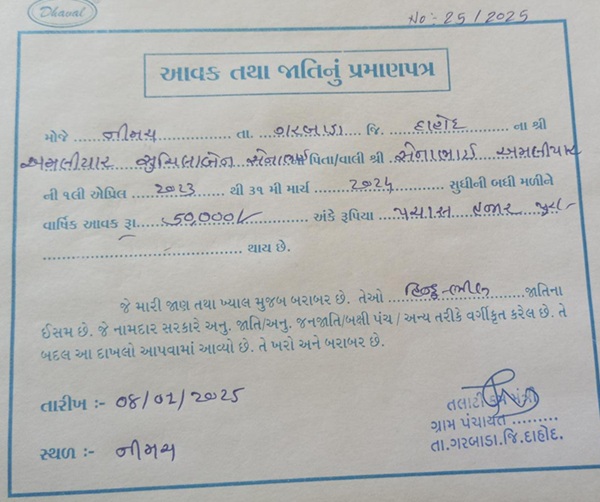 Dhaval
No : 25/2025
આવક તથા જાતિનું પ્રમાણપત્ર
મોજે નીમચ તા. ગરબાડા જિ. દાહોદ ના શ્રી
અમલીયાર સુમિલાબેન સેનાભાઈ પિતા/વાલી શ્રી સેનાભાઈ અમલીયાર
ની ૧લી એપ્રિલ ૨૦૨૩ થી ૩૧ મી માર્ચ ૨૦૨૪ સુધીની બધી મળીને
વાર્ષિક આવક રૂા. 50,000/- અંકે રૂપિયા પચાસ હજાર પુરા
થાય છે.
જે મારી જાણ તથા ખ્યાલ મુજબ બરાબર છે. તેઓ હિન્દુ-ભીલ જાતિના
ઈસમ છે. જે નામદાર સરકારે અનુ. જાતિ/અનુ. જનજાતિ/બક્ષી પંચ / અન્ય તરીકે વર્ગીકૃત કરેલ છે. તે
બદલ આ દાખલો આપવામાં આવ્યો છે. તે ખરો અને બરાબર છે.
તારીખ :- ૦૪/૦૧/૨૦૨૫
તલાટી કમ મંત્રી
ગ્રામ પંચાયત
સ્થળ :- નીમચ
તા.ગરબાડા.જિ.દાહોદ.